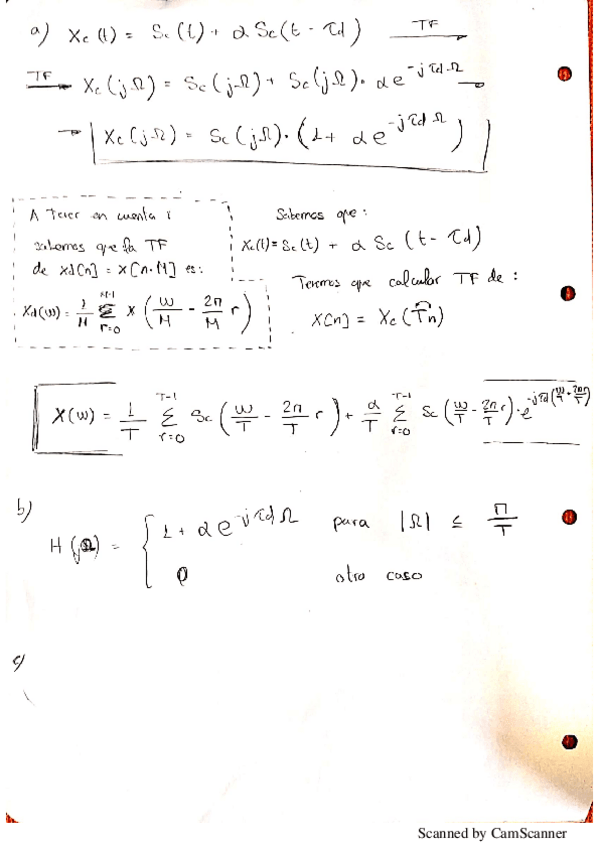 a) Xc(t) = Sc(t) + α Sc(t - τd) TF
TF Xc(jΩ) = Sc(jΩ) + Sc(jΩ) · αe^{-jτdΩ}
→ Xc(jΩ) = Sc(jΩ) · (1 + αe^{-jτdΩ})
A tener en cuenta:
sabemos que la TF
de xd[n] = x[n·M] es:
Xd(ω) = 1/M Σ_{r=0}^{M-1} X(ω/M - 2π/M r)
Sabemos que:
Xc(t) = Sc(t) + α Sc(t - τd)
Tenemos que calcular TF de:
X[n] = Xc(Tn)
X(ω) = 1/T Σ_{r=0}^{T-1} Sc(ω/T - 2π/T r) + α/T Σ_{r=0}^{T-1} Sc(ω/T - 2π/T r) · e^{-jτd(ω/T + 2π/T)}
b)
H(jΩ) = { 1 + αe^{-jτdΩ} para |Ω| ≤ π/T
0 otro caso
c)
Scanned by CamScanner